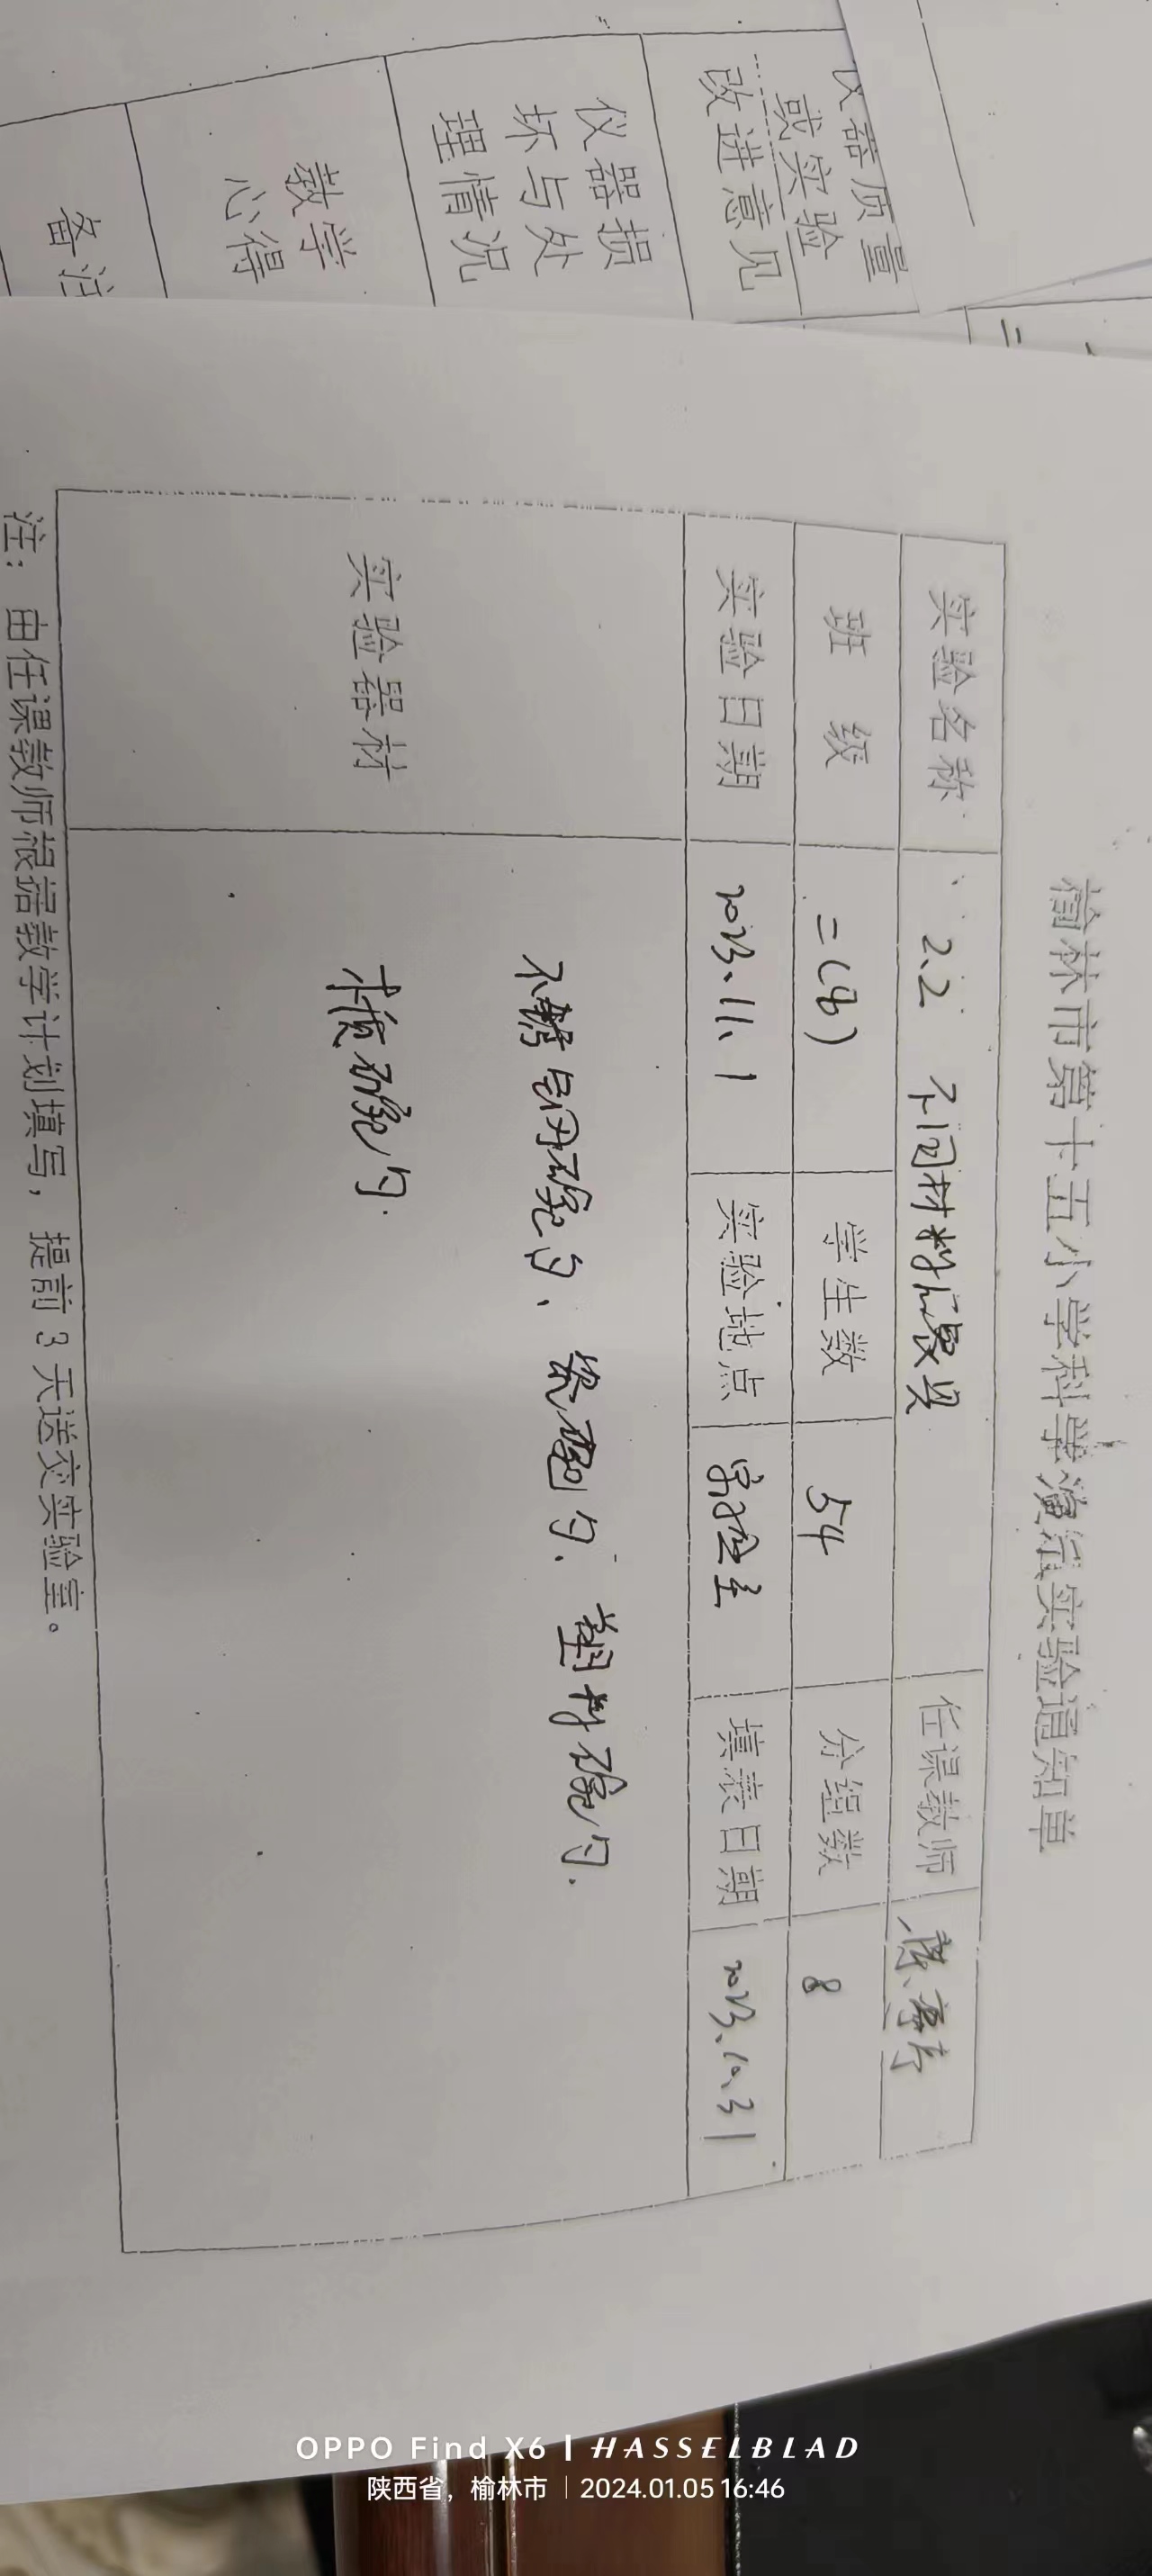 仪器质量
或实验
改进意见
仪器损
坏与处
理情况
教学
心得
备注
榆林市第十五小学科学演示实验通知单
实验名称 2.2 不同材料的餐具 任课教师
班 级 二(8) 学生数 54 分组数 8
实验日期 2023、11、1 实验地点 实验室 填表日期 2023、10、31
实验器材
不锈钢碗勺、瓷碗勺、塑料碗勺.
木质碗勺.
注：由任课教师根据教学计划填写，提前 3 天送交实验室。
OPPO Find X6 | HASSELBLAD
陕西省，榆林市 | 2024.01.05 16:46